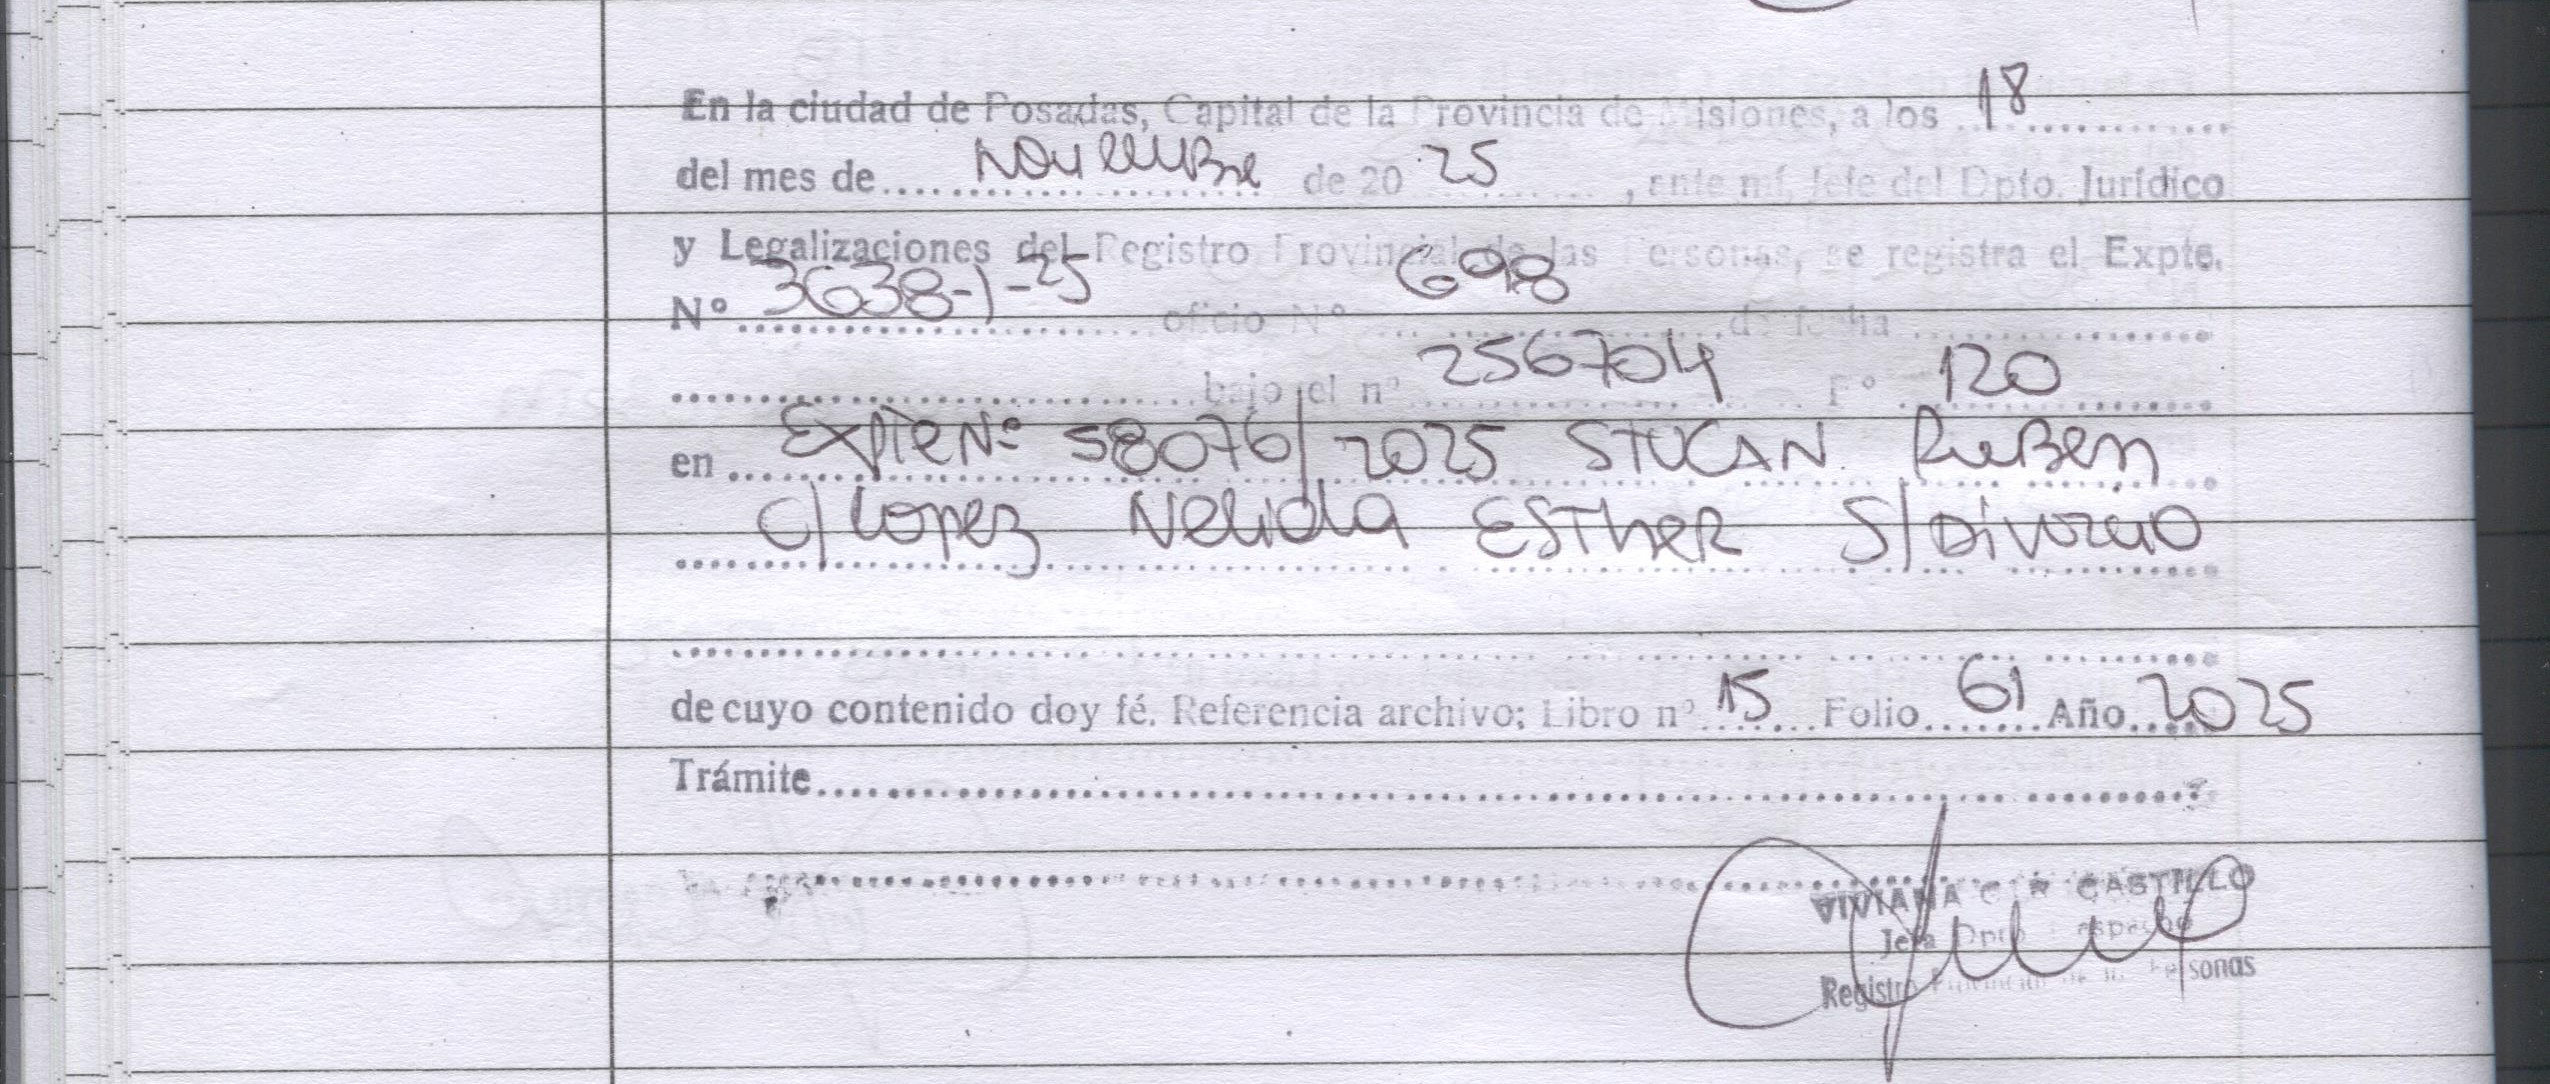 En la ciudad de Posadas, Capital de la Provincia de Misiones, a los 18
del mes de Noviembre de 20 25, ante mí, Jefe del Dpto. Jurídico
y Legalizaciones del Registro Provincial de las Personas, se registra el Expte.
Nº 3638-1-25 oficio Nº 698 de fecha
bajo el nº 256704 Fº 120
en Expte Nº 58076/2025 STUCAN Ruben
c/ Lopez Nelida ESTHER S/Divorcio
de cuyo contenido doy fé. Referencia archivo; Libro nº 15 Folio 61 Año 2025
Trámite
VIVIANA C. R CASTILLO
Jefa Dpto. Despacho
Registro Provincial de las Personas